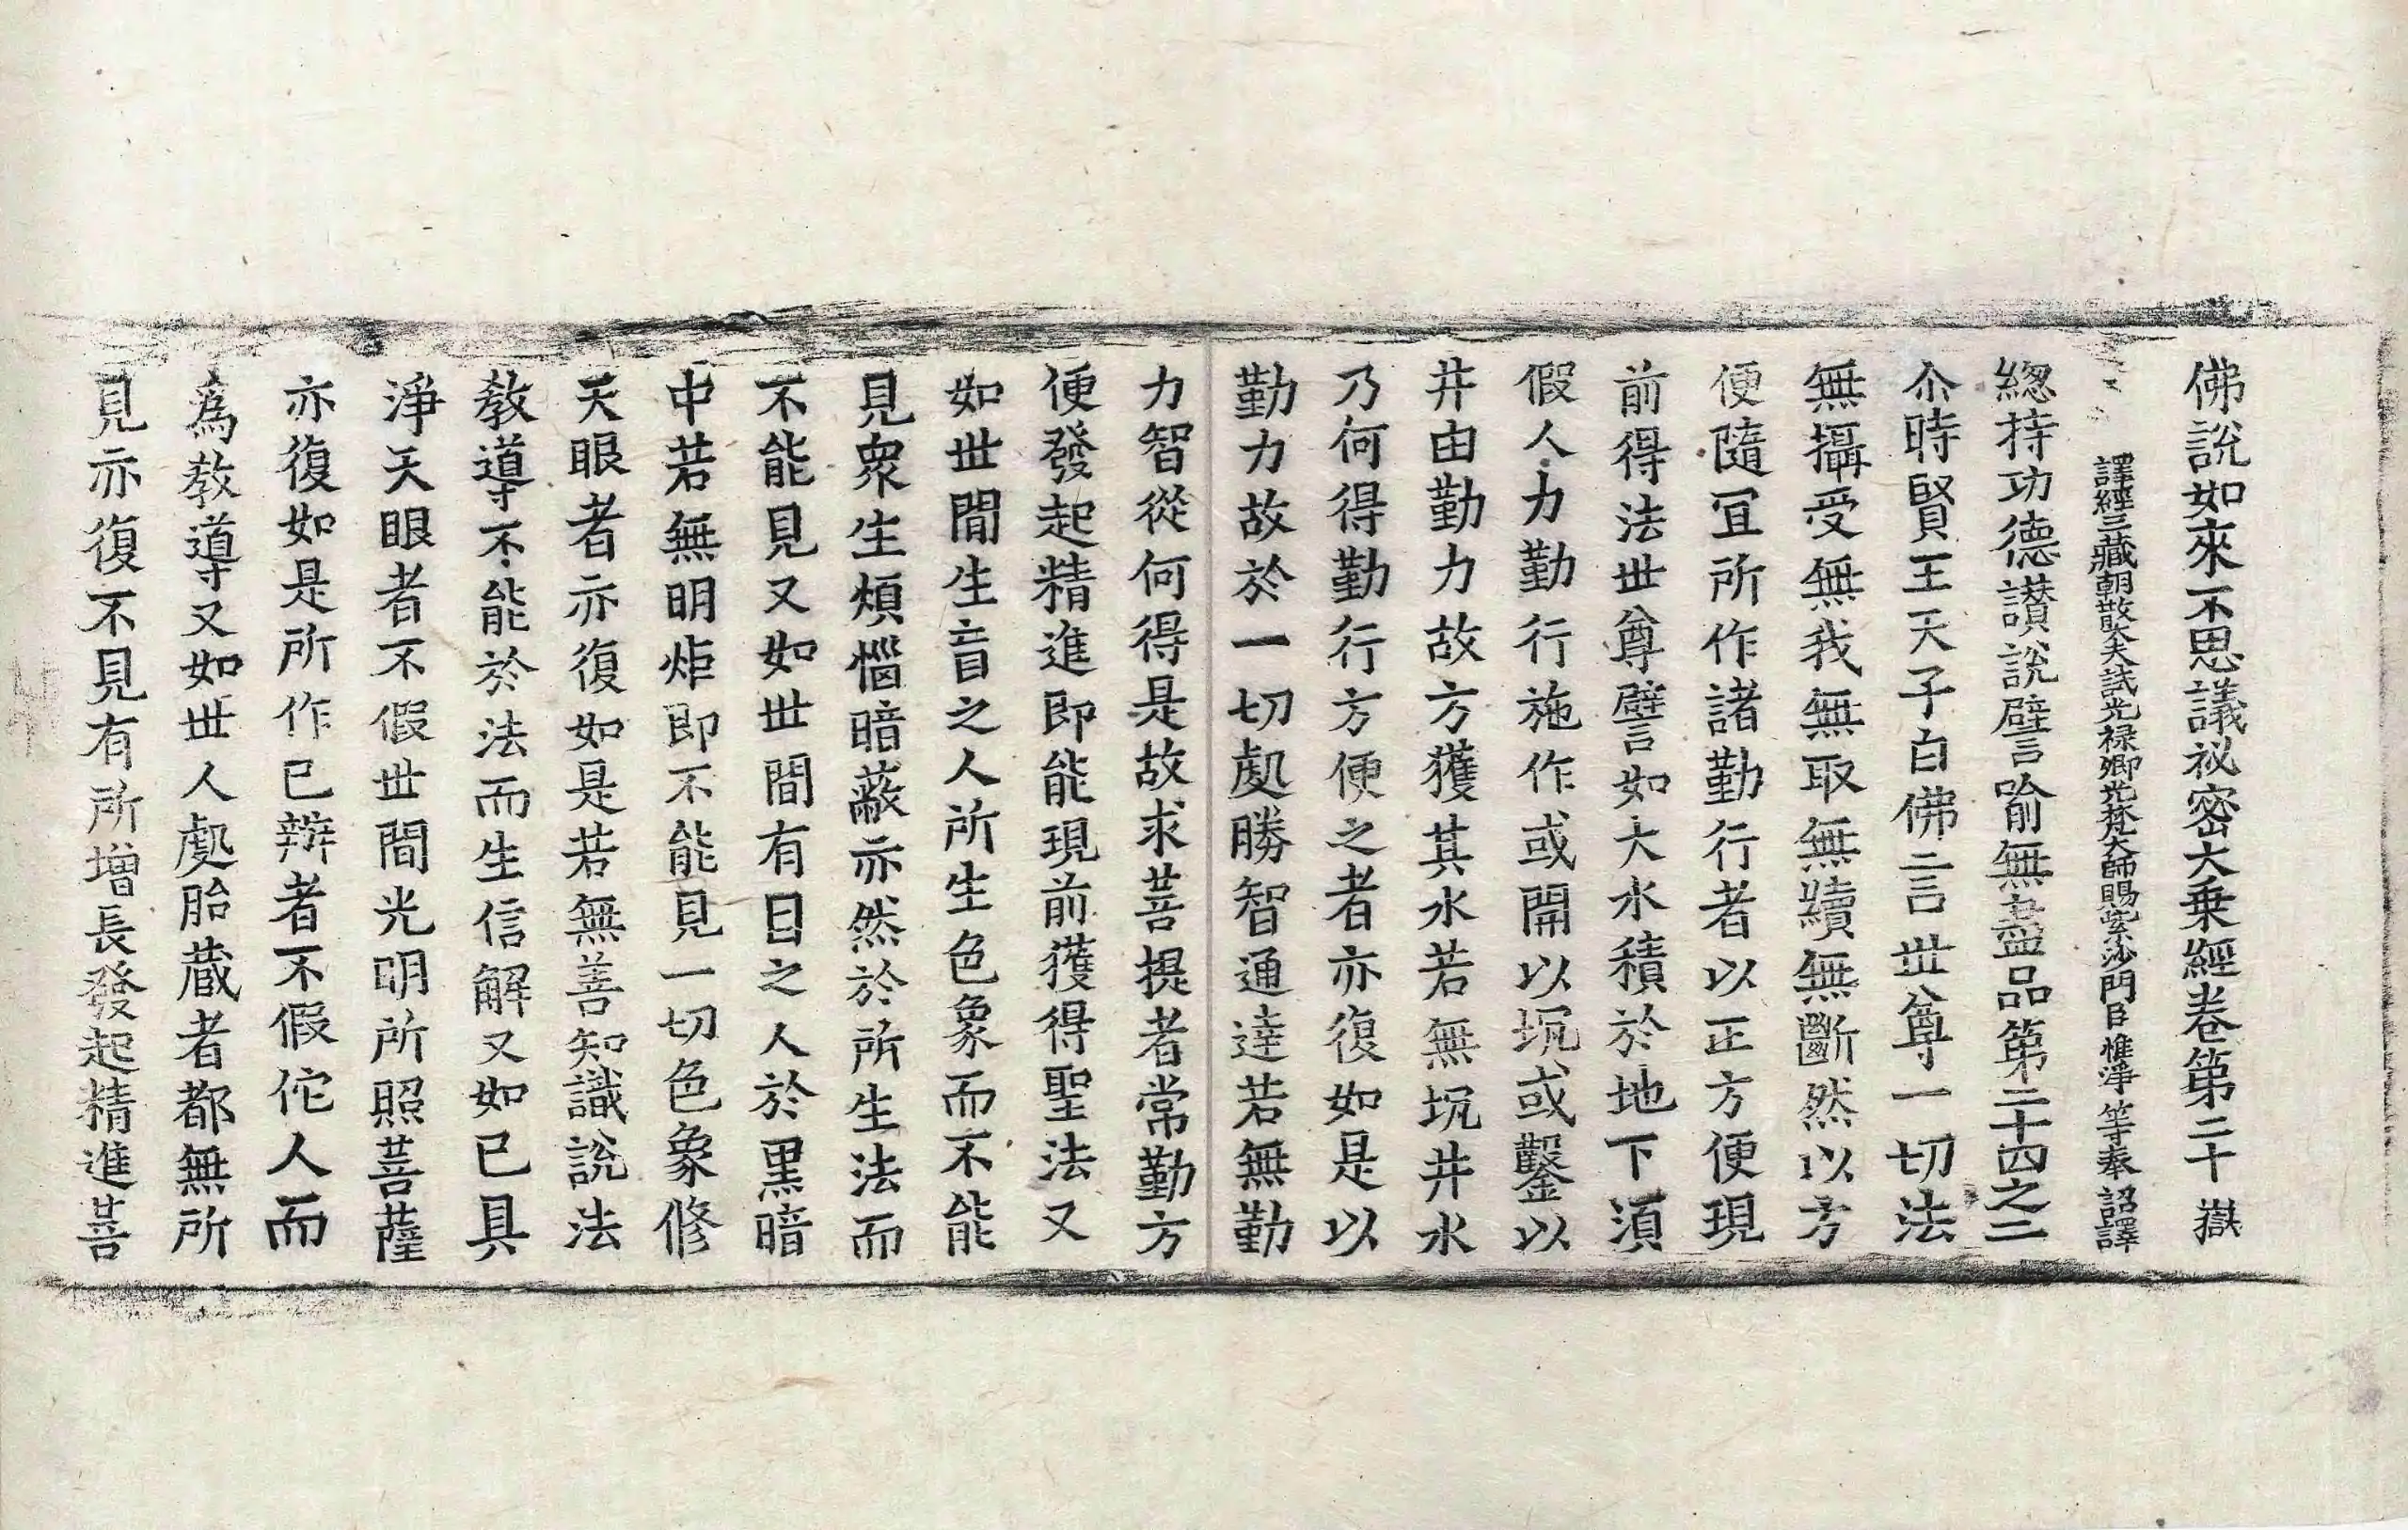 佛說如來不思議祕密大乗經卷第二十 嶽
譯經三藏朝散大夫試光祿卿光梵大師賜紫沙門臣惟淨等奉 詔譯
緫持功德讃說譬喻無盡品第二十四之二
尒時賢王天子白佛言世尊一切法
無攝受無我無取無續無斷然以方
便隨冝所作諸勤行者以正方便現
前得法世尊譬如大水積於地下湏
假人力勤行施作或開以坑或鑿以
井由勤力故方獲其水若無坑井水
乃何得勤行方便之者亦復如是以
勤力故於一切處勝智通達若無勤
力智從何得是故求菩提者常勤方
便發起精進即能現前獲得聖法又
如世間生盲之人所生色象而不能
見衆生煩惱暗蔽亦然於所生法而
不能見又如世間有目之人於黑暗
中若無明炬即不能見一切色象修
天眼者亦復如是若無善知識說法
教導不能於法而生信解又如已具
淨天眼者不假世間光明所照菩薩
亦復如是所作已辦者不假佗人而
爲教導又如世人處胎藏者都無所
見亦復不見有所增長發起精進菩